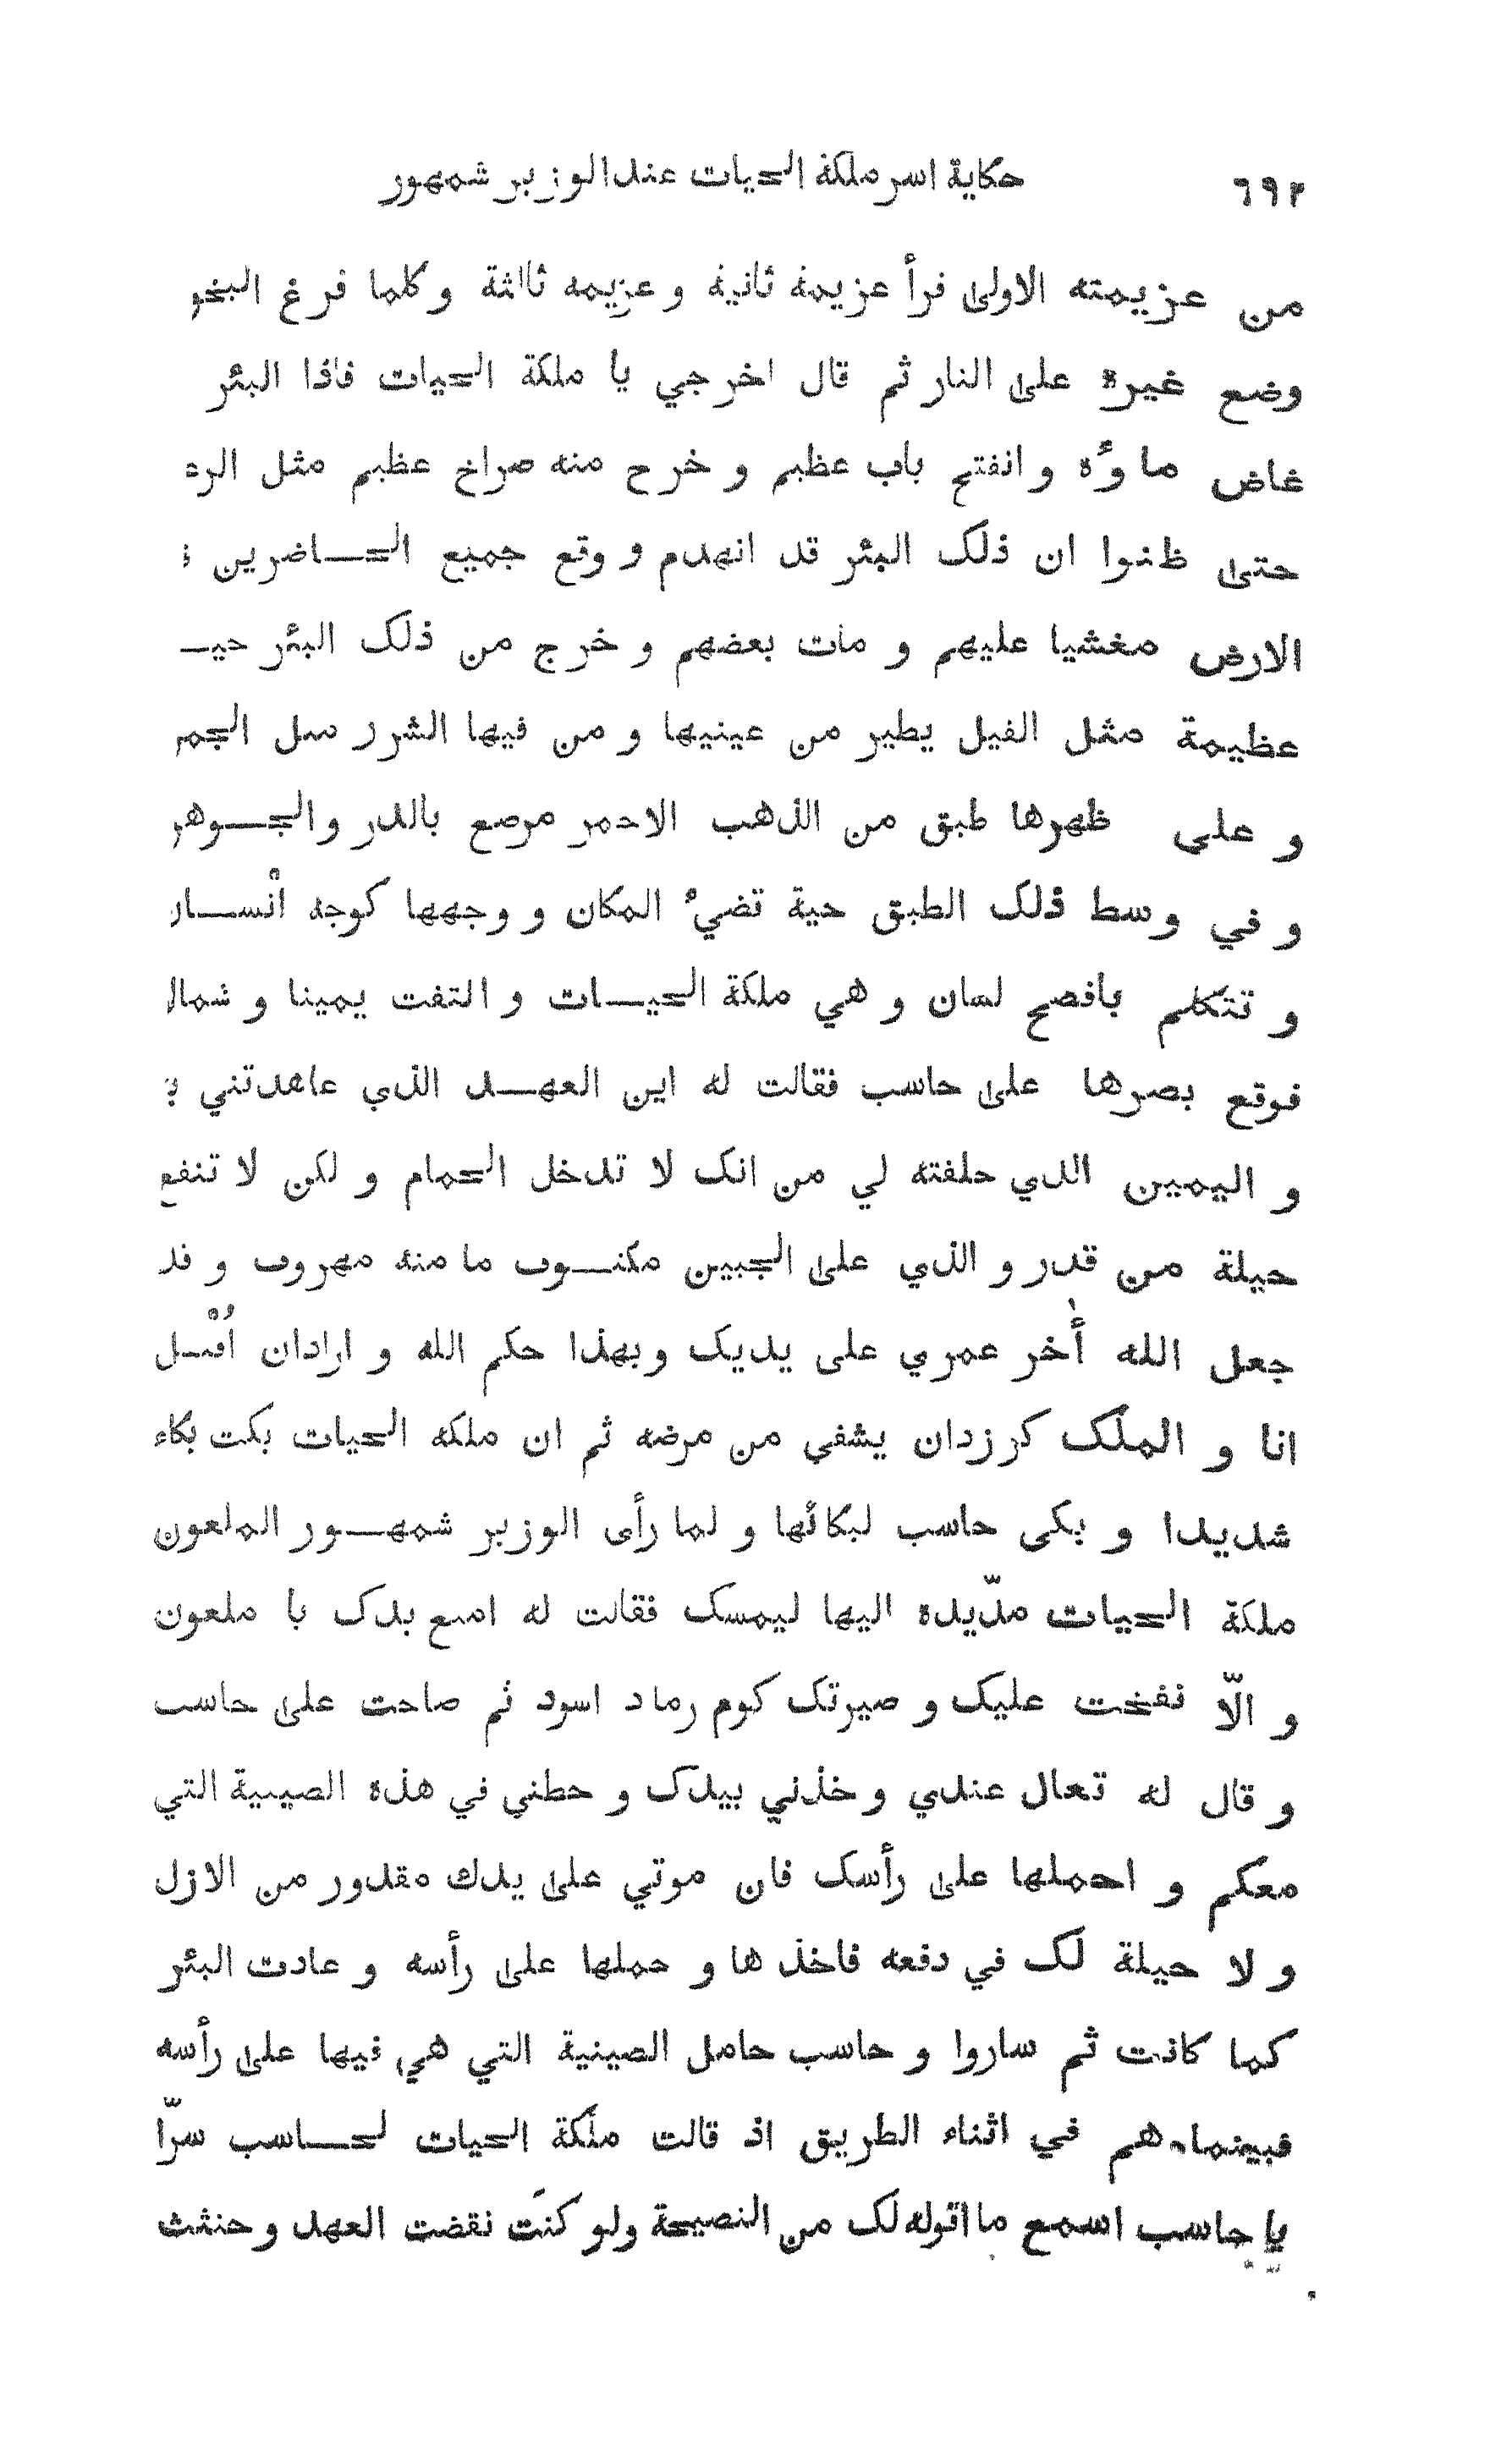 ٦٩٢ حكاية اسر ملكة الحيات عند الوزير شمهور
من عزيمته الاولى قرأ عزيمة ثانية و عزيمة ثالثة و كلما فرغ البخو
وضع غيره على النار ثم قال اخرجي يا ملكة الحيات فاذا البئر
غاض ماؤه و انفتح باب عظيم و خرج منه صراخ عظيم مثل الرء
حتى ظنوا ان ذلك البئر قد انهدم و وقع جميع الحاضرين
الارض مغشيا عليهم و مات بعضهم و خرج من ذلك البئر حيـ
عظيمة مثل الفيل يطير من عينيها و من فيها الشرر مثل الجمر
و على ظهرها طبق من الذهب الاحمر مرصع بالدر و الجوهر
و في وسط ذلك الطبق حية تضيء المكان و وجهها كوجه انسان
و تتكلم بافصح لسان و هي ملكة الحيات و التفت يمينا و شمالا
فوقع بصرها على حاسب فقالت له اين العهد الذي عاهدتني بـ
و اليمين الذي حلفته لي من انك لا تدخل الحمام و لكن لا تنفع
حيلة من قدر و الذي على الجبين مكتوب ما منه مهروب و قد
جعل الله أخر عمري على يديك و بهذا حكم الله و اراد ان اُقتل
انا و الملك كرزدان يشفى من مرضه ثم ان ملكه الحيات بكت بكاء
شديدا و بكى حاسب لبكائها و لما رأى الوزير شمهور الملعون
ملكة الحيات مدّ يده اليها ليمسك فقالت له امنع يدك يا ملعون
و الّا نفخت عليك و صيرتك كوم رماد اسود ثم صاحت على حاسب
و قال له تعال عندي و خذني بيدك و حطني في هذه الصينية التي
معكم و احملها على رأسك فان موتي على يدك مقدور من الازل
و لا حيلة لك في دفعه فاخذ ها و حملها على رأسه و عادت البئر
كما كانت ثم ساروا و حاسب حامل الصينية التي هي فيها على رأسه
فبينما هم في اثناء الطريق اذ قالت ملكة الحيات لحاسب سرّا
يا حاسب اسمع ما اقوله لك من النصيحة ولو كنت نقضت العهد و حنثت